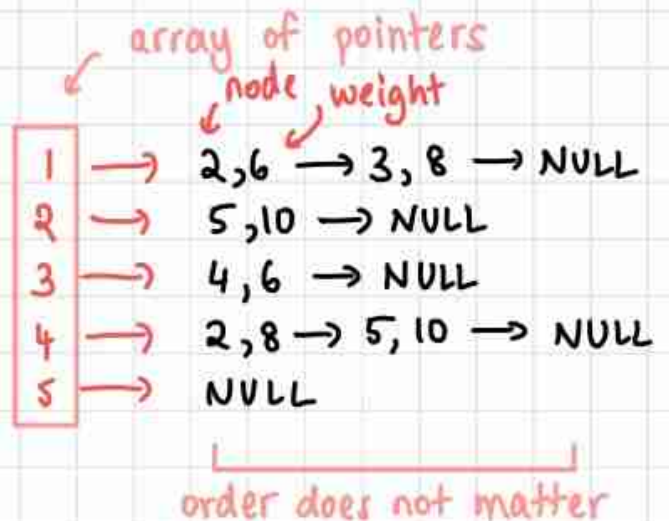 array of pointers
node, weight
1 → 2,6 → 3,8 → NULL
2 → 5,10 → NULL
3 → 4,6 → NULL
4 → 2,8 → 5,10 → NULL
5 → NULL
order does not matter